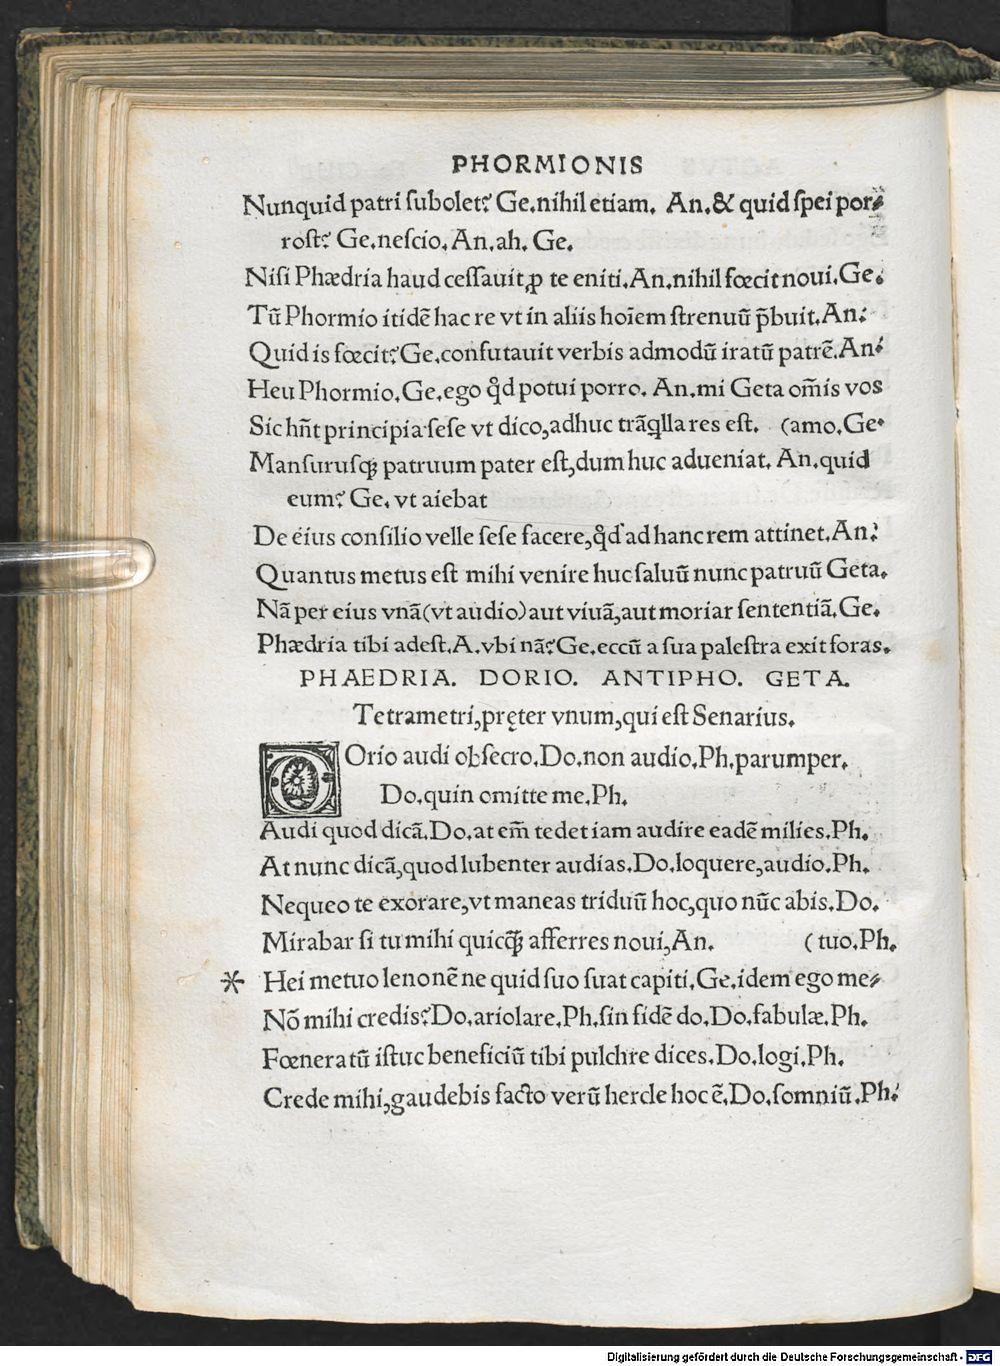 PHORMIONIS
Nunquid patri ſubolet? Ge.nihil etiam. An.& quid ſpei por⸗
roſt? Ge.neſcio.An.ah. Ge.
Niſi Phædria haud ceſſauit,ꝓ te eniti.An.nihil fœcit noui.Ge.
Tũ Phormio itidẽ hac re vt in aliis hoĩem ſtrenuũ p̃buit.An.
Quid is fœcit? Ge.confutauit verbis admodũ iratũ patrẽ.An.
Heu Phormio.Ge.ego qd̃ potui porro. An.mi Geta om̃is vos
Sic hñt principia ſeſe vt dico,adhuc trãqlla res eſt. (amo.Ge.
Manſuruſq; patruum pater eſt,dum huc adueniat. An.quid
eum? Ge. vt aiebat
De eius conſilio velle ſeſe facere,qd̃ ad hanc rem attinet.An.
Quantus metus eſt mihi venire huc ſaluũ nunc patruũ Geta.
Nã per eius vnã(vt audio)aut viuã,aut moriar ſententiã.Ge.
Phædria tibi adeſt.A.vbi nã? Ge.eccũ a ſua paleſtra exit foras.
PHAEDRIA. DORIO. ANTIPHO. GETA.
Tetrametri,pręter vnum,qui eſt Senarius.
DOrio audi obſecro.Do.non audio.Ph.parumper.
Do.quin omitte me.Ph.
Audi quod dicã.Do.at em̃ tedet iam audire eadẽ milies.Ph.
At nunc dicã,quod lubenter audias.Do.loquere,audio.Ph.
Nequeo te exorare,vt maneas triduũ hoc,quo nũc abis.Do.
Mirabar ſi tu mihi quicq̃ afferres noui,An. (tuo.Ph.
* Hei metuo lenonẽ ne quid ſuo ſuat capiti.Ge.idem ego me⸗
Nõ mihi credis? Do.ariolare.Ph.ſin fidẽ do.Do.fabulæ.Ph.
Fœneratũ iſtuc beneficiũ tibi pulchre dices.Do.logi.Ph.
Crede mihi,gaudebis facto verũ hercle hoc ẽ.Do.ſomniũ.Ph.
Digitalisierung gefördert durch die Deutsche Forschungsgemeinschaft - DFG